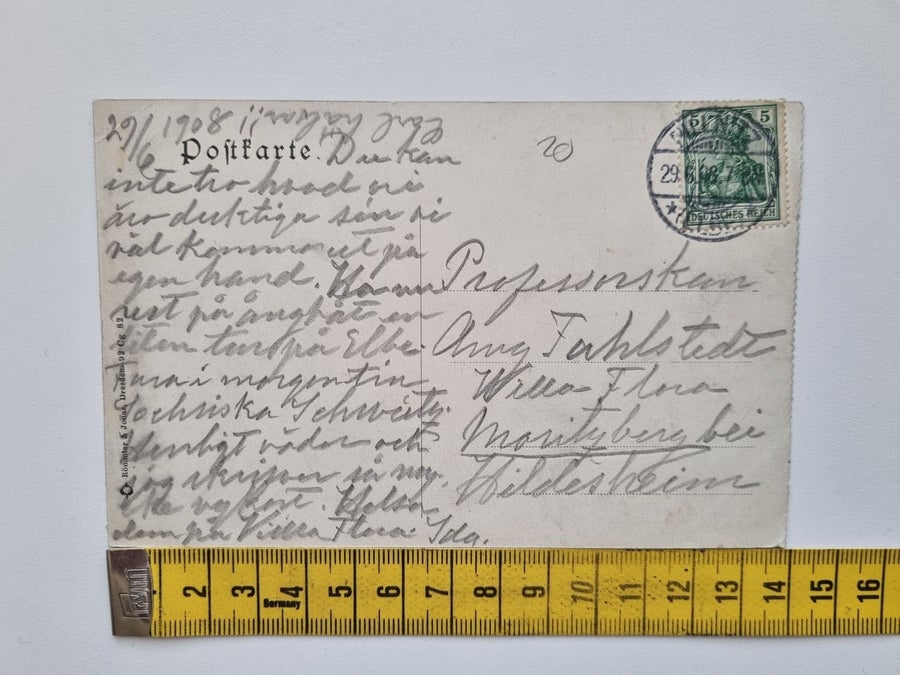 29/6 1908
Carl hälsar!!
Postkarte.
Du kan
inte tro hvad vi
äro duktiga sen vi
väl kommo ut på
egen hand. Ha nu
rest på ångbåt en
liten tur på Elbe.
Fara i morgon tin
Sachsiska Schweitz.
Herrligt väder och
jag skrifver så myc
ket vykort. Helsa
dem på Villa Flora. Ida.
Römmler & Jonas, Dresden. 92 Cg 82
20
5 5
DEUTSCHES REICH
29.6.08.7-8
Professorskan
Amy Fahlstedt
Willa Flora
Moritzberg bei
Hildesheim
2 3 4 5 6 7 8 9 10 11 12 13 14 15 16
Germany